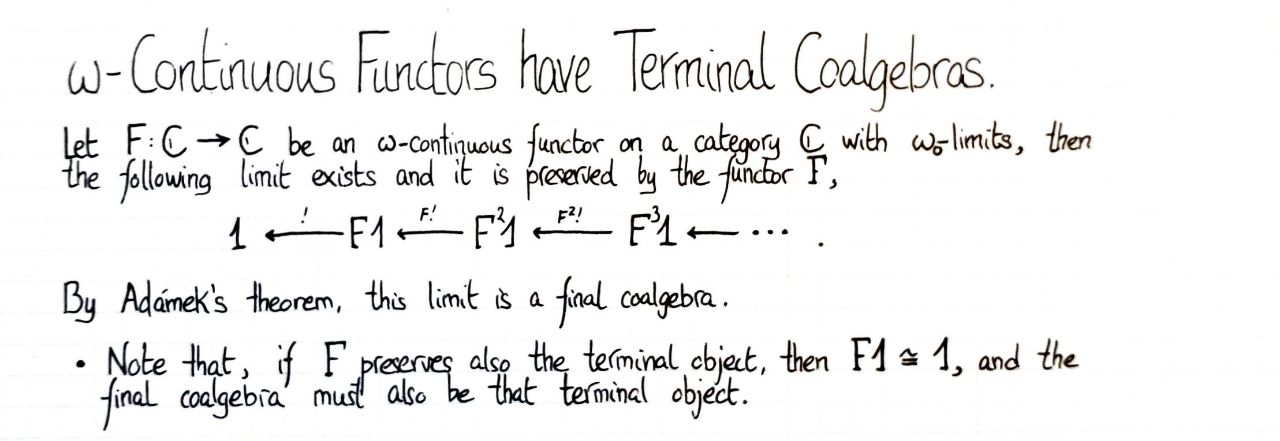 ω-Continuous Functors have Terminal Coalgebras.
Let F: ℂ → ℂ be an ω-continuous functor on a category ℂ with ω₀-limits, then
the following limit exists and it is preserved by the functor F,
1 ←! F1 ←F! F²1 ←F²! F³1 ← ··· .
By Adámek's theorem, this limit is a final coalgebra.
• Note that, if F preserves also the terminal object, then F1 ≅ 1, and the
final coalgebra must also be that terminal object.